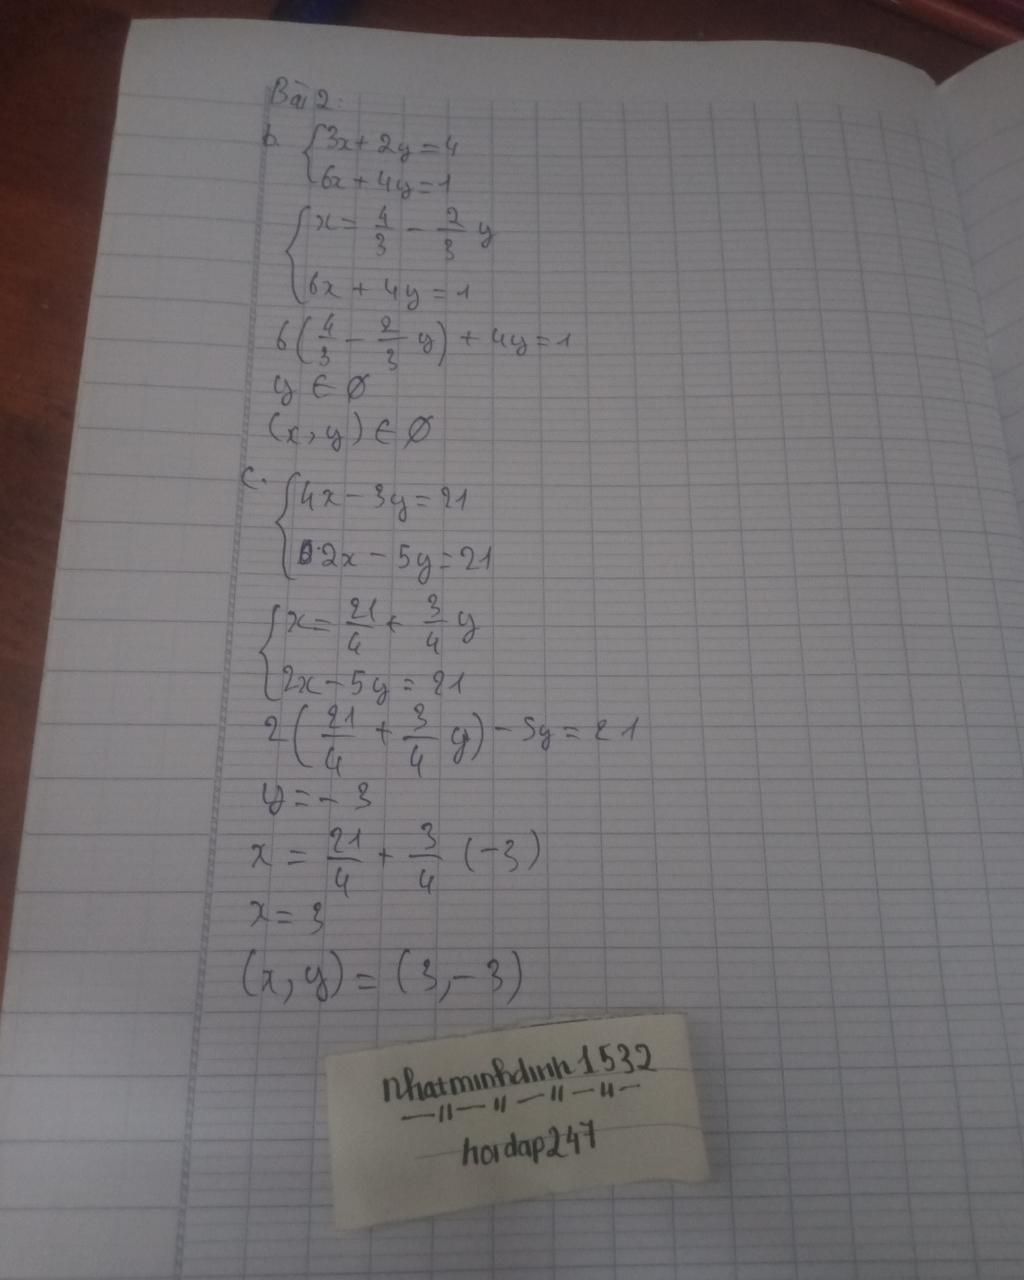 Bài 2:
b. { 3x + 2y = 4
6x + 4y = 1
{ x = 4/3 - 2/3 y
6x + 4y = 1
6(4/3 - 2/3 y) + 4y = 1
y ∈ ∅
(x, y) ∈ ∅
c. { 4x - 3y = 21
2x - 5y = 21
{ x = 21/4 + 3/4 y
2x - 5y = 21
2(21/4 + 3/4 y) - 5y = 21
y = - 3
x = 21/4 + 3/4 (-3)
x = 3
(x, y) = (3, -3)
nhatminhdinh1532
hoidap247